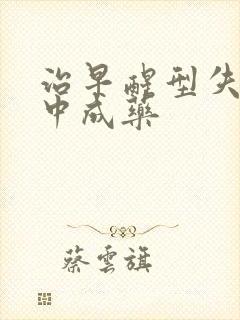 治早醒型失
中成藥
蔡雲旗